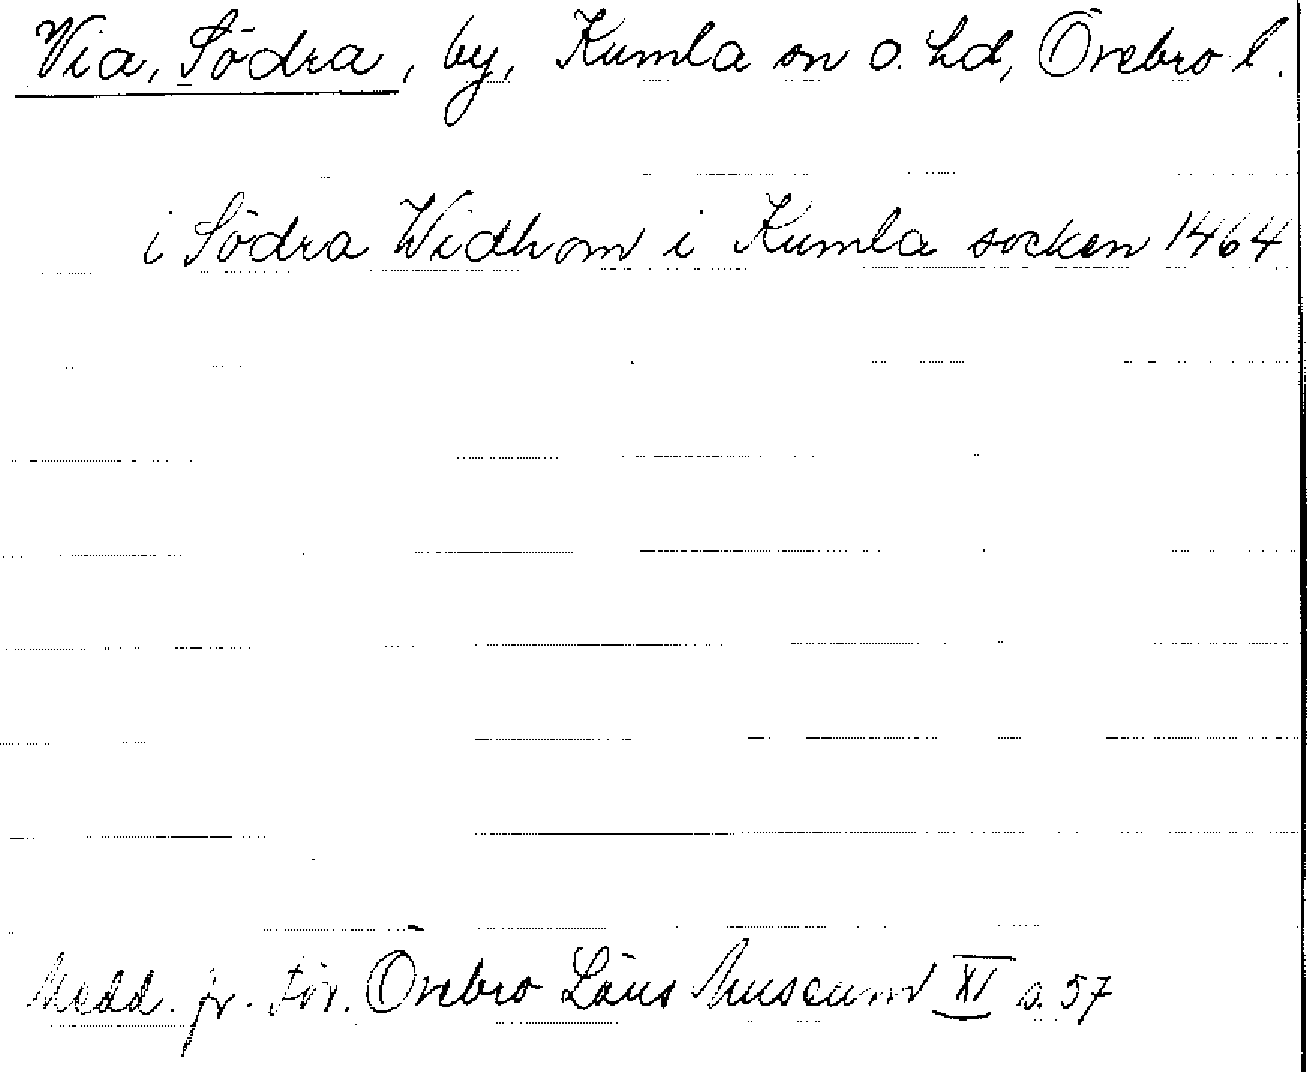 Via, Södra, by, Kumla sn o. hd, Örebro l.
i Södra Widhom i Kumla socken 1464
Medd. fr. För. Örebro Läns Museum XI s. 57